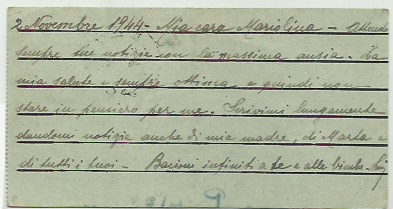 2 Novembre 1944 - Mia cara Mariolina - Attendo
sempre tue notizie con la massima ansia. La
mia salute è sempre ottima e quindi non
stare in pensiero per me. Scrivimi lungamente
dandomi notizie anche di mia madre, di Marta e
di tutti i tuoi - Bacioni infiniti a te e alle bimbe.